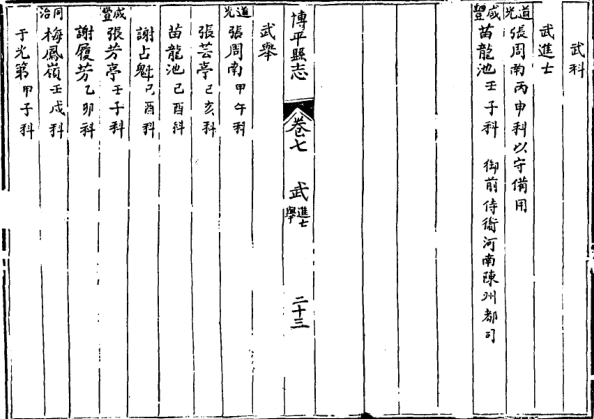 武科
武進士
道光 張周南丙申科以守備用
咸豐 苗龍池壬子科 御前侍衛河南陳州都司
博平縣志 卷七 武進士舉 二十三
武舉
道光 張周南甲午科
張芸亭己亥科
苗龍池己酉科
謝占魁己酉科
咸豐 張芳亭壬子科
謝履芳乙卯科
同治 梅鳳嶺壬戌科
于光第甲子科